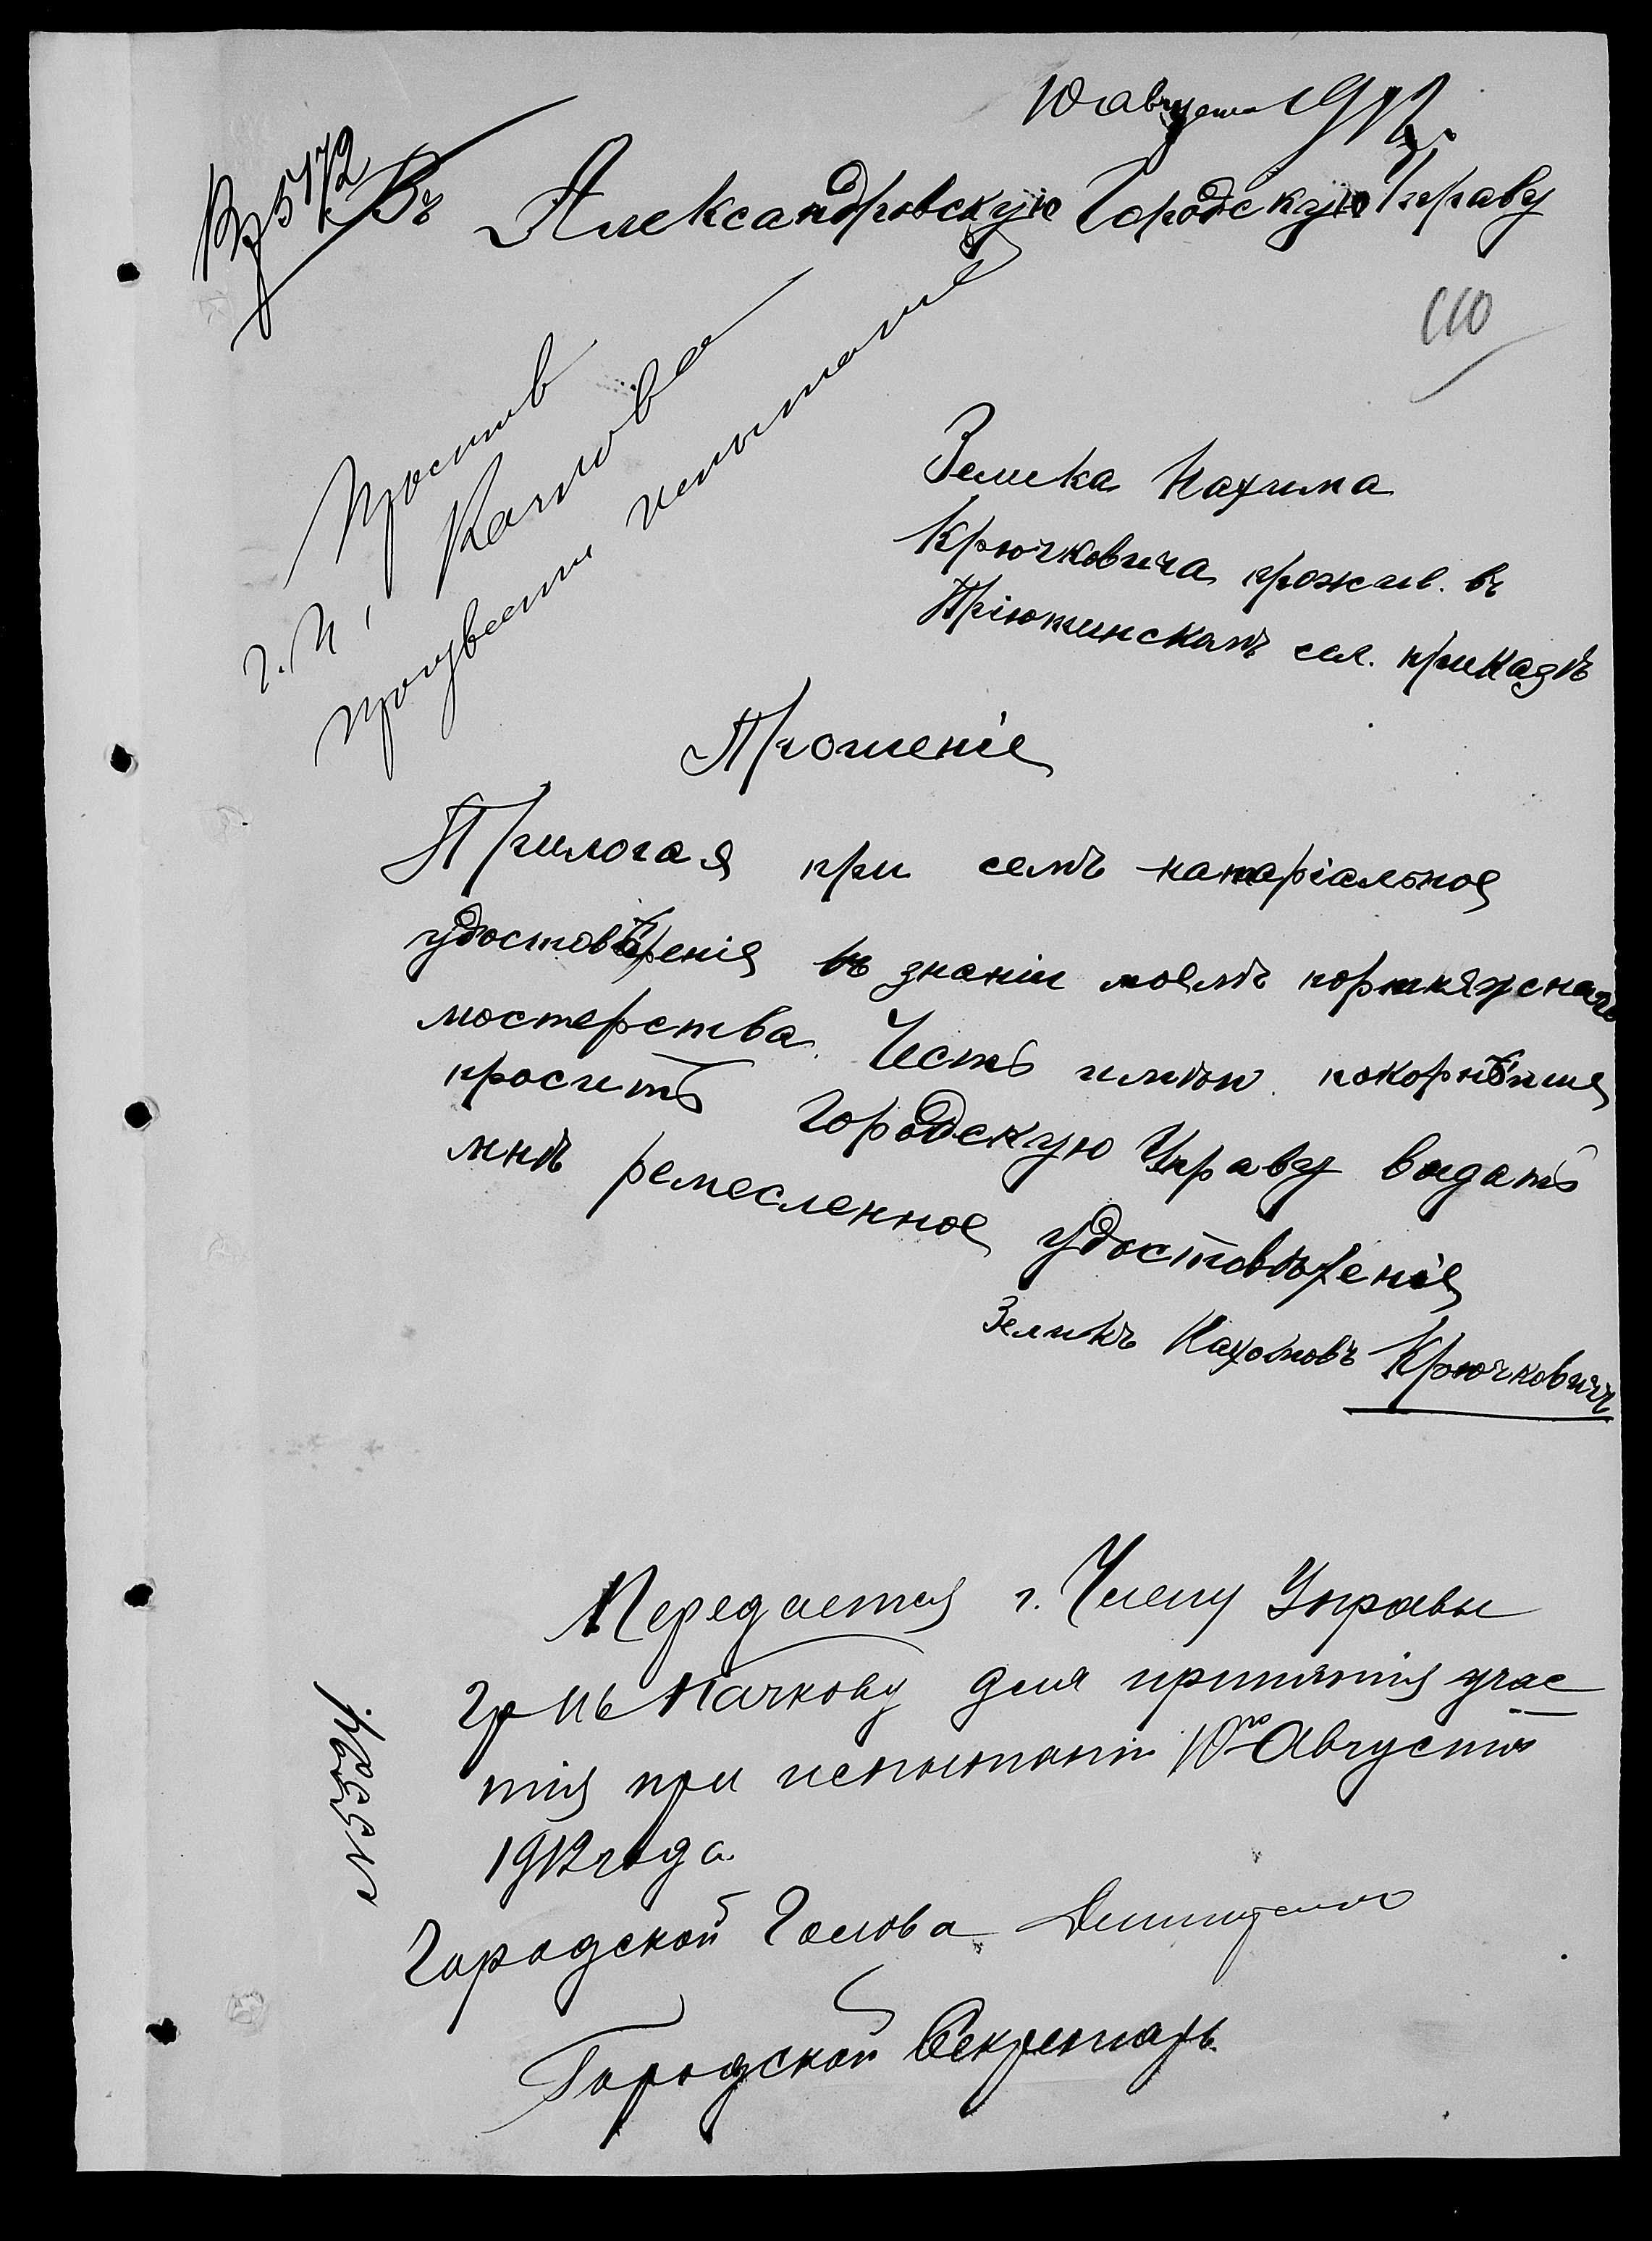 10 августа 1912 г.
Вх 5172
Въ Александровскую Городскую Управу
110
Зелика Нахима
Крючковича прожив. въ
Пріютинскамъ сел. приказѣ
г.
произвести испытание
Прошеніе
Прилогая при семъ натаріальное
удостовѣренія въ знаніи моемъ портняжскаго
мостерства. Честь имѣю покорнѣише
просить Городскую Управу выдать
мнѣ ремесленное удостовѣренія
Зеликъ Нахомовъ Крючковичъ
Передается г. Члену Управы
Качкову для принятія учас
тія при испытаніи 10го Августа
1912 года
Городской Голова
Городской Секретарь